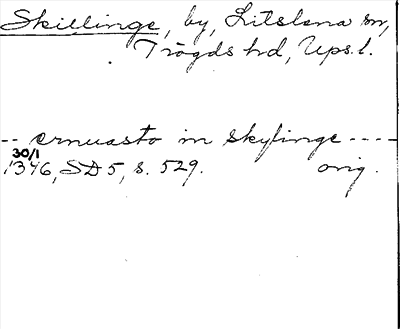 Skillinge, by, Litslena sn,
Trögds hd, Upps.l.
-- ernuasto in skylinge ----
30/1
1346, SD 5, s. 529. orig.